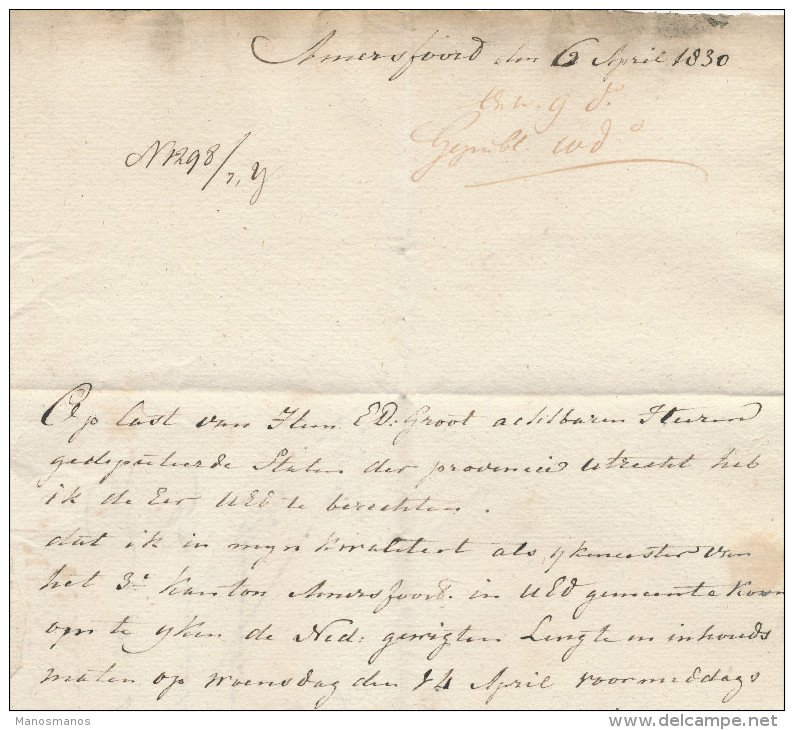 Amersfoord den 6 April 1830
Ontv. 9 do
Gepubl. 10 do
N 1298/7, y
Op Last van Hun ED. Groot achtbaren Heeren
gedeputeerde Staten der provincie Utrecht heb
ik de Eer UED te berechten.
dat ik in myn kwaliteit als ykmeester van
het 3e Kanton Amersfoord. in UED gemeente Kom
om te yken de Ned: gewigten Lengte en inhouds
maten op woensdag den 14 April voormiddags
Manosmanos
delcampe.net